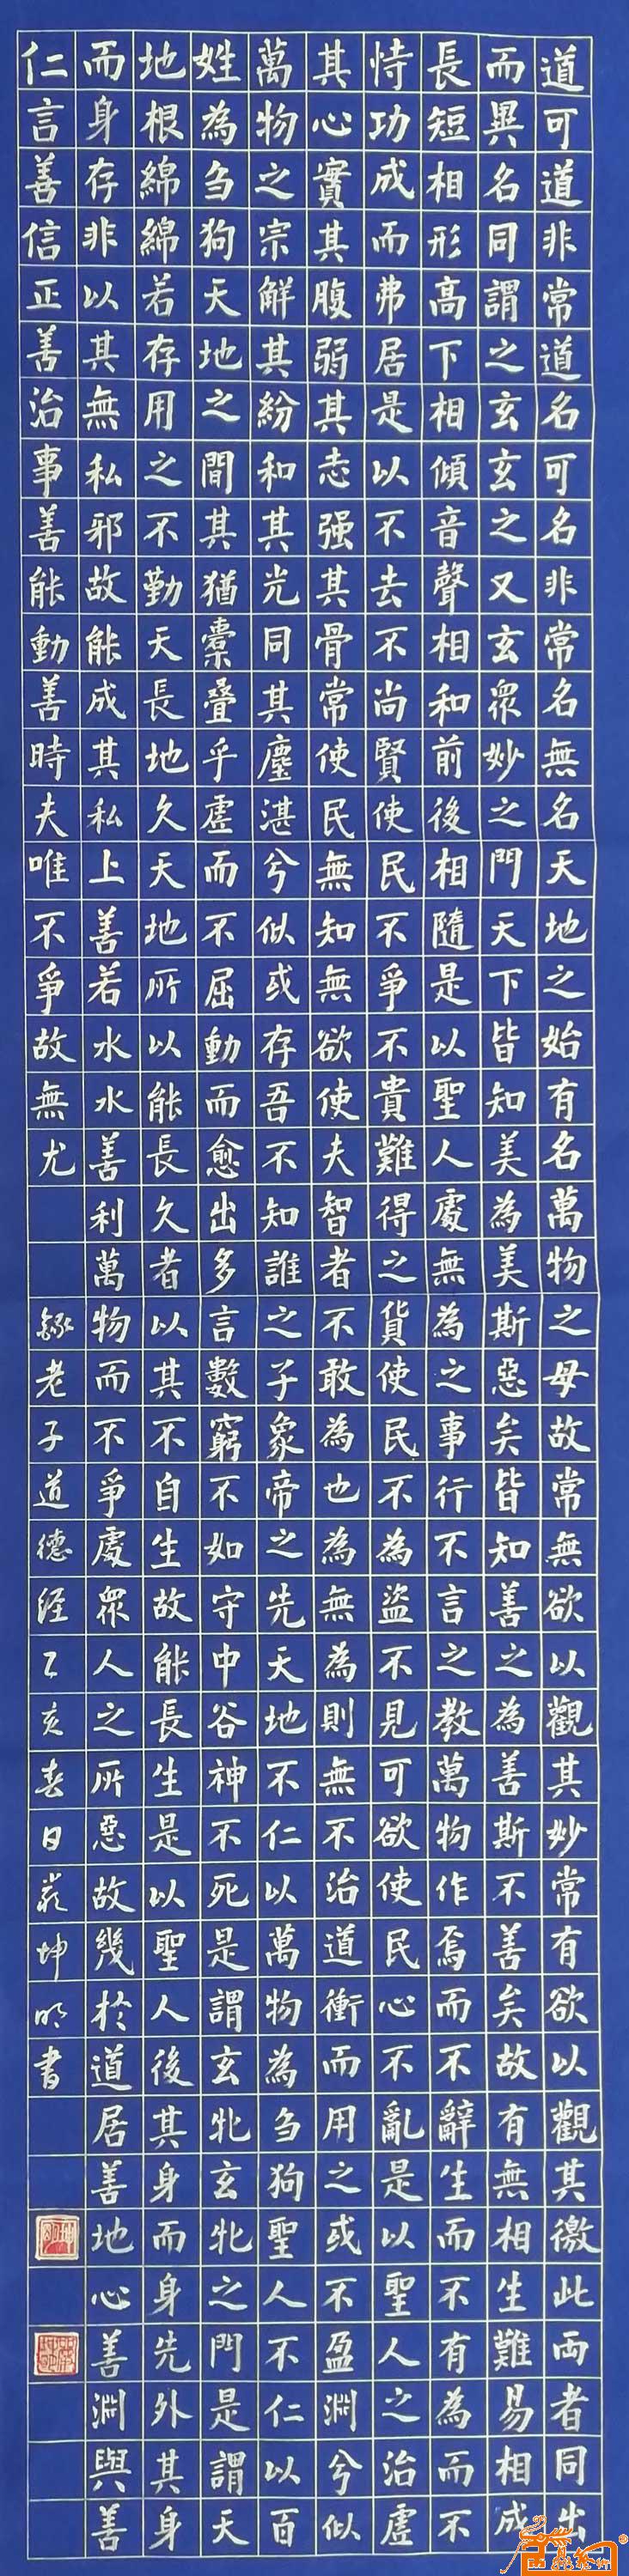 道可道非常道名可名非常名無名天地之始有名萬物之母故常無欲以觀其妙常有欲以觀其徼此両者同出
而異名同謂之玄玄之又玄眾妙之門天下皆知美為美斯惡矣皆知善之為善斯不善矣故有無相生難易相成
長短相形高下相傾音聲相和前後相隨是以聖人處無為之事行不言之教萬物作焉而不辭生而不有為而不
恃功成而弗居是以不去不尚賢使民不爭不貴難得之貨使民不為盜不見可欲使民心不亂是以聖人之治虛
其心實其腹弱其志强其骨常使民無知無欲使夫智者不敢為也為無為則無不治道衝而用之或不盈淵兮似
萬物之宗解其紛和其光同其塵湛兮似或存吾不知誰之子象帝之先天地不仁以萬物為芻狗聖人不仁以百
姓為芻狗天地之間其猶橐疊乎虛而不屈動而愈出多言數窮不如守中谷神不死是謂玄牝玄牝之門是謂天
地根綿綿若存用之不勤天長地久天地所以能長久者以其不自生故能長生是以聖人後其身而身先外其身
而身存非以其無私邪故能成其私上善若水水善利萬物而不爭處眾人之所惡故幾於道居善地心善淵與善
仁言善信正善治事善能動善時夫唯不爭故無尤
錄老子道德经乙亥春日嚴坤明書